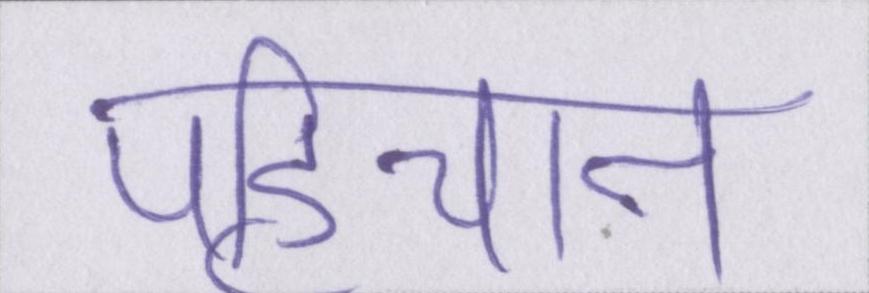 पहिचान